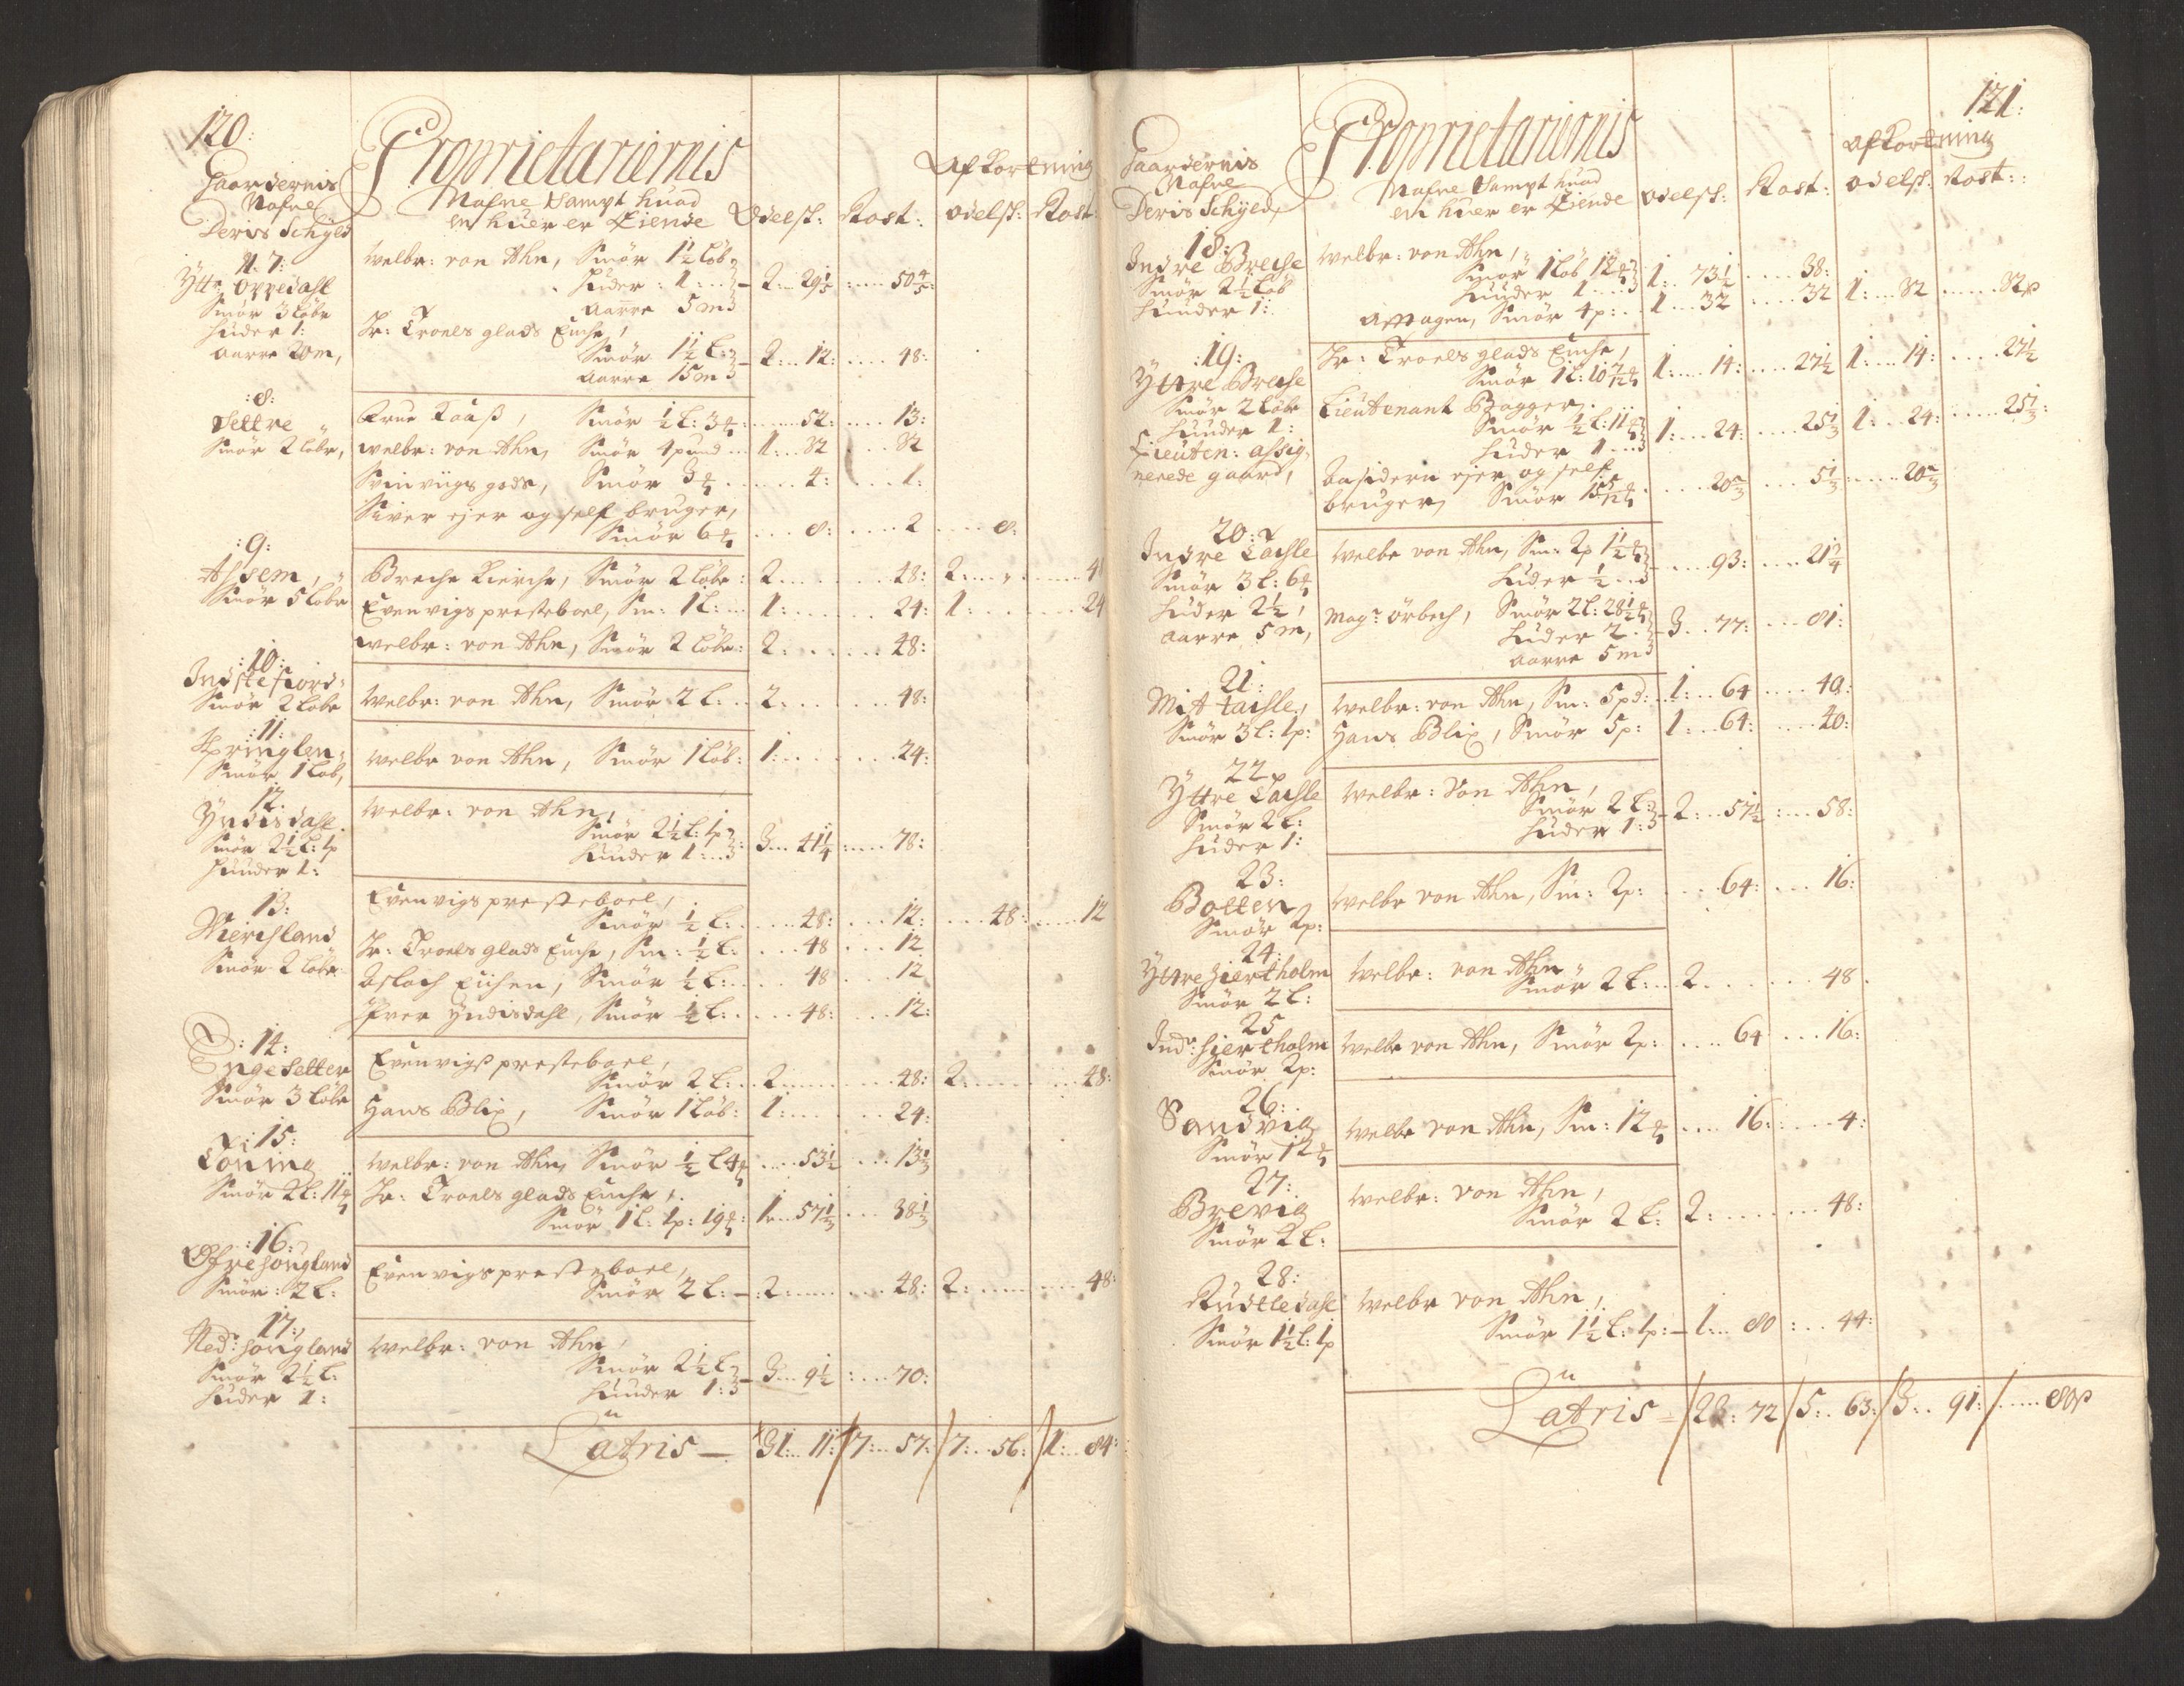 120:
Gaardernis
Nafne
Deris Schyld
Proprietariernis
Nafne Sampt huad
en huer er Eiende
Odelsk:
Rost:
Afkortning
odelsk: Rost:
N. 7:
Ytte oppedahl
Smör 3 løber
Huder 1:
Aarre 20 m,
Welbr: von Ahn, Smör 1½ løb
Huder: 1
Aarre 5 m
2: 29⅕ 50⅘
Hr: Troels glads Enche,
Smör 1½ L:
Aarre 15 m
2: 12: 48:
:8:
Settre
Smör 2 løber,
Smör ½ L: 3 52: 13:
Welbr: von Ahn, Smör 4 pund 1: 32 32
Svinviigs gods, Smör 3 4: 1:
Siver ejer og self bruger,
Smör 6 8: 2 8:
:9:
Assem,
Smör 5 løber
Breche Kierche, Smör 2 løbe: 2 48: 2 4
Evenvigs presteboel, Sm: 1 L: 1: 24: 1: 24
Welbr: von Ahn, Smör 2 løbe: 2: 48:
:10:
Indstefiord:
Smör 2 løbe
Welbr: von Ahn, Smör 2 L: 2: 48:
:11:
Springlen:
Smör 1 løb,
Welbr von Ahn, Smör 1 løb: 1: 24:
12.
Yndisdahl
Smör 2½ L: 1p
Huuder 1:
Welbr: von Ahn,
Smör 2½ L: 1p
Huuder 1:
3 41¼ 78:
13:
Mierchland
Smör 2 løbe:
Evenvigs presteboel,
Smör ½ L: 48: 12: 48: 12
Hr: Troels glads Enche, Sm: ½ L: 48 12
Aslach Eiisen, Smör ½ L: 48 12
Iver Yndisdahl, Smör ½ L: 48: 12:
:14:
Ingesetter
Smör 3 løbe
Evenvigs presteboel,
Smör 2 L: 2 48: 2: 48:
Hans Blix, Smör 1 løb: 1: 24:
:15:
Töning
Smör 2 L: 11
Welbr: von Ahn, Smör ½ L 4 53½ 13⅓
Hr: Troels glads Enche,
Smör 1 L: 1p: 19 1: 57⅓ 38⅓
:16:
Öfresougland
Smör: 2 L:
Evenvigs presteboel,
Smör 2 L: 2: 48: 2: 48:
17:
Ned: sougland
Smör 2½ L:
Huder 1:
Welbr: von Ahn,
Smör 2½ L
Huuder 1:
3 9½ 70:
Latris 31: 11: 7: 57: 7: 56: 1: 84:
121:
Gaardernis
Nafne
Deris Schyld
Proprietariernis
Nafne Sampt huad
en huer er Eiende
odelsk:
Rost:
afkortning
odelsk: Rost:
18:
Indre Breche
Smör 2½ løb
Huuder 1:
Welbr: von Ahn,
Smör 1 løb 12
Huuder 1
1: 73½ 38:
Smör 4 p: 1 32 32 1: 32 32
:19:
Yttre Breche
Smör 2 løbe
Huuder 1:
Lieuten: assig,
nerede gaard,
Hr: Troels glads Enche,
Smör 1 L: 10 1: 14: 27½ 1: 14: 27½
Lieutenant Bagger
Smör ½ L: 11
Huder 1
1: 24: 25⅓ 1: 24: 25⅓:
ejer og self
bruger, Smör 15 20⅔ 5⅓ 20⅔
20:
Indre Tachle
Smör 3 L: 6
Huder 2½,
Aarre 5 m,
Welbr von Ahn, Sm: 2p 1½
Huder ½
93: 21¼
Magr örbech, Smör 2 L: 28½
Huder 2
Aarre 5 m
3 77: 81:
21:
Mit tachle,
Smör 3 L: 1p:
Welbr: von Ahn, Sm: 5 pd: 1: 64 40:
Hans Blix, Smör 5 p: 1: 64: 40:
22
Yttre Tachle
Smör 2 L:
Huder 1:
Welbr: Von Ahn,
Smör 2 L:
Huder 1:
2: 57½ 58:
23:
Botten
Smör 2p:
Welbr von Ahn, Sm: 2p: 64: 16:
24:
Yttre Hiertholm
Smör 2 L:
Welbr: von Ahn
Smör 2 L: 2 48.
25
Indr: Hiertholm
Smör 2p:
Welbr von Ahn, Smör 2p: 64 16:
26:
Sandvig
Smör 12
Welbr von Ahn, Sm: 12 16: 4:
27:
Brevig
Smör 2 L:
Welbr: von Ahn,
Smör 2 L: 2: 48:
28:
Rudtledahl
Smör 1½ L: 1p
Welbr von Ahn,
Smör 1½ L: 1p: 1: 80 44:
Latris 28: 72 5: 63: 3: 91: 80